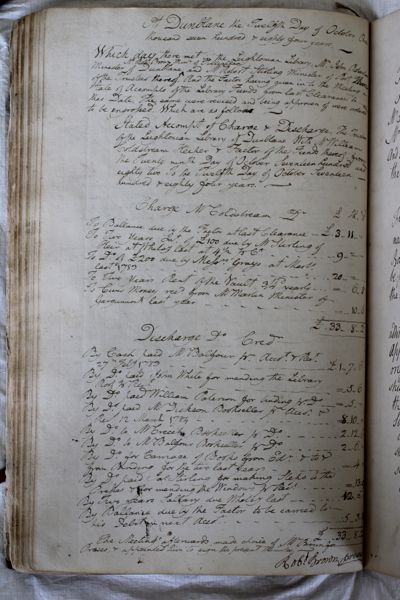 At Dunblane the Twelfth Day of October One
thousand seven hundred & eighty four years.
Which day there met in the Leightonian Library Mr John Robertson
Minister of Dunblane and Mr Robert Stirling Minister of
of the Trustees thereof And the Factor having given in to the Meeting
State of Accompts of the Library Funds from last Clearance to
this Date The same were revised and being approven of were ordered
to be engrossed Which are as follows
Stated Accompt of Charge & Discharge The Funds
of the Leightonian Library of Dunblane With William
Coldstream Keeper & Factor of the Funds thereof from
the Twenty ninth Day of October Seventeen hundred and
eighty two To the Twelfth Day of October Seventeen
hundred & eighty four years.
Charge Mr Coldstream Dr £
To Ballance due by the Factor at last Clearance £3.11
To Two Years Rent of £100 due by Mr Sterling of
Keir at Whits last at 4½ pr Ct 9
To Do of £200 due by Messrs Grays at Marts
last 20
To Two Years Rent of the Vault 3sh yearly 6
To Civis Money recd from Mr Martin Minister of
last year 10
£33.8.2
Discharge Do Cred
By Cash paid Mr Balfour pr Acct & Rect
27th Febry 1783 £1.7.6
By Do paid John White for mending the Library
Roof & Rect 3.6
By Do paid William Paterson for binding pr Do 5
By Do paid Mr Dickson Bookseller pr Acct &
Rect 12 March 1784 8.10
By Do to Mr Creech Bookseller pr Do 2.12
By Do to Mr Balfour Bookseller pr Do 2.6
By Do for Carriage of Books from Edr & to &
from Binding for the two last Years 4
By Do paid for making Steps to the
Presses & for mending the Window & Rect 13
By Two Years Salary due Whits last 12
By Ballance due by the Factor to be carried to
his Debit in next Acct 5.3
£33.8.2
The Meeting afterwards made choice of Mr
Preses, & appointed him to sign the present Minutes
Robt Brown, Preses